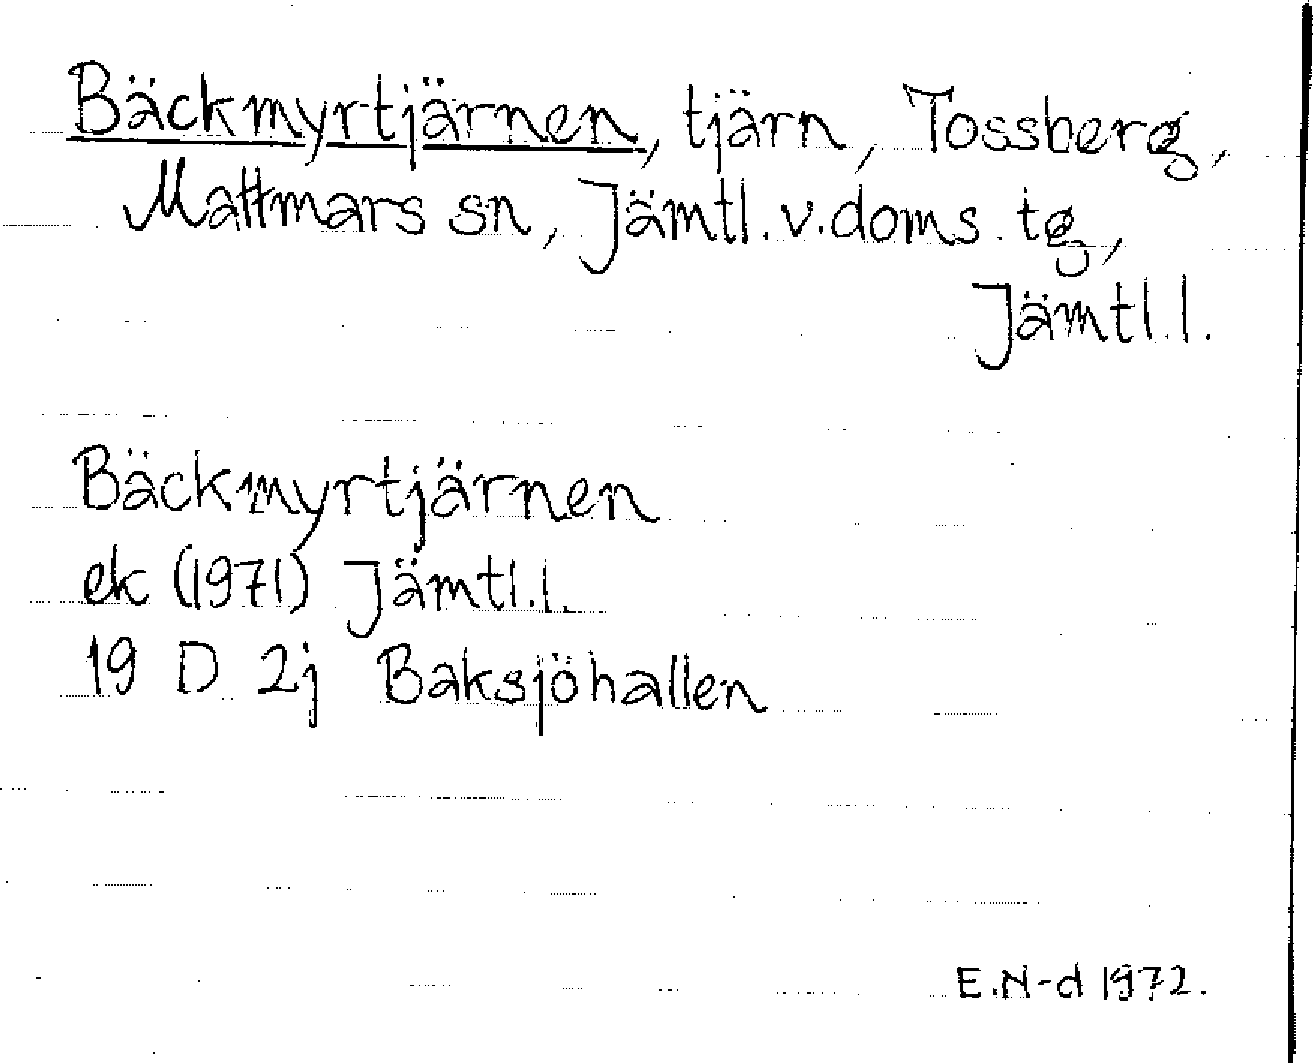 Bäckmyrtjärnen, tjärn, Tossberg,
Mattmars sn, Jämtl. v. doms. tg,
Jämtl. l.
Bäckmyrtjärnen
ek (1971) Jämtl. l.
19 D 2j Baksjöhallen
E.N-d 1972.